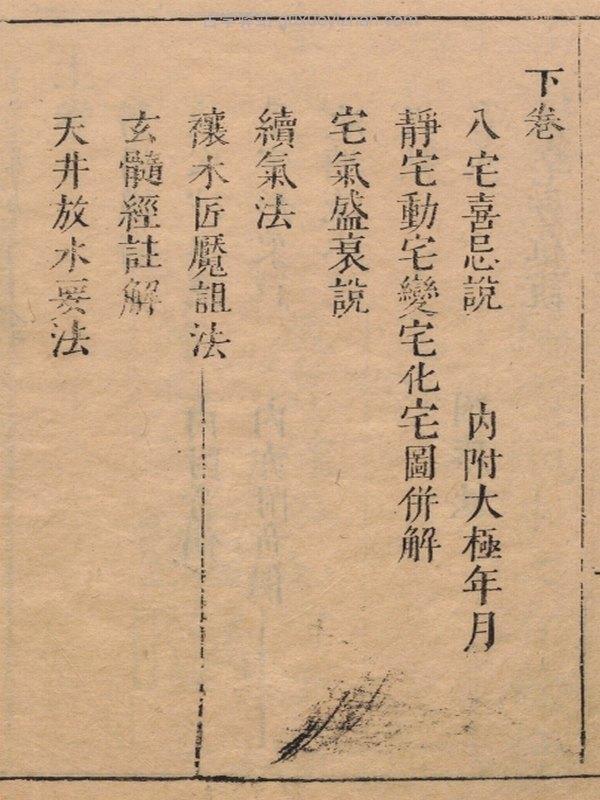 下卷
八宅喜忌說　內附大極年月
靜宅動宅變宅化宅圖併解
宅氣盛衰說
續氣法
禳木匠魘詛法
玄髓經註解
天井放水要法